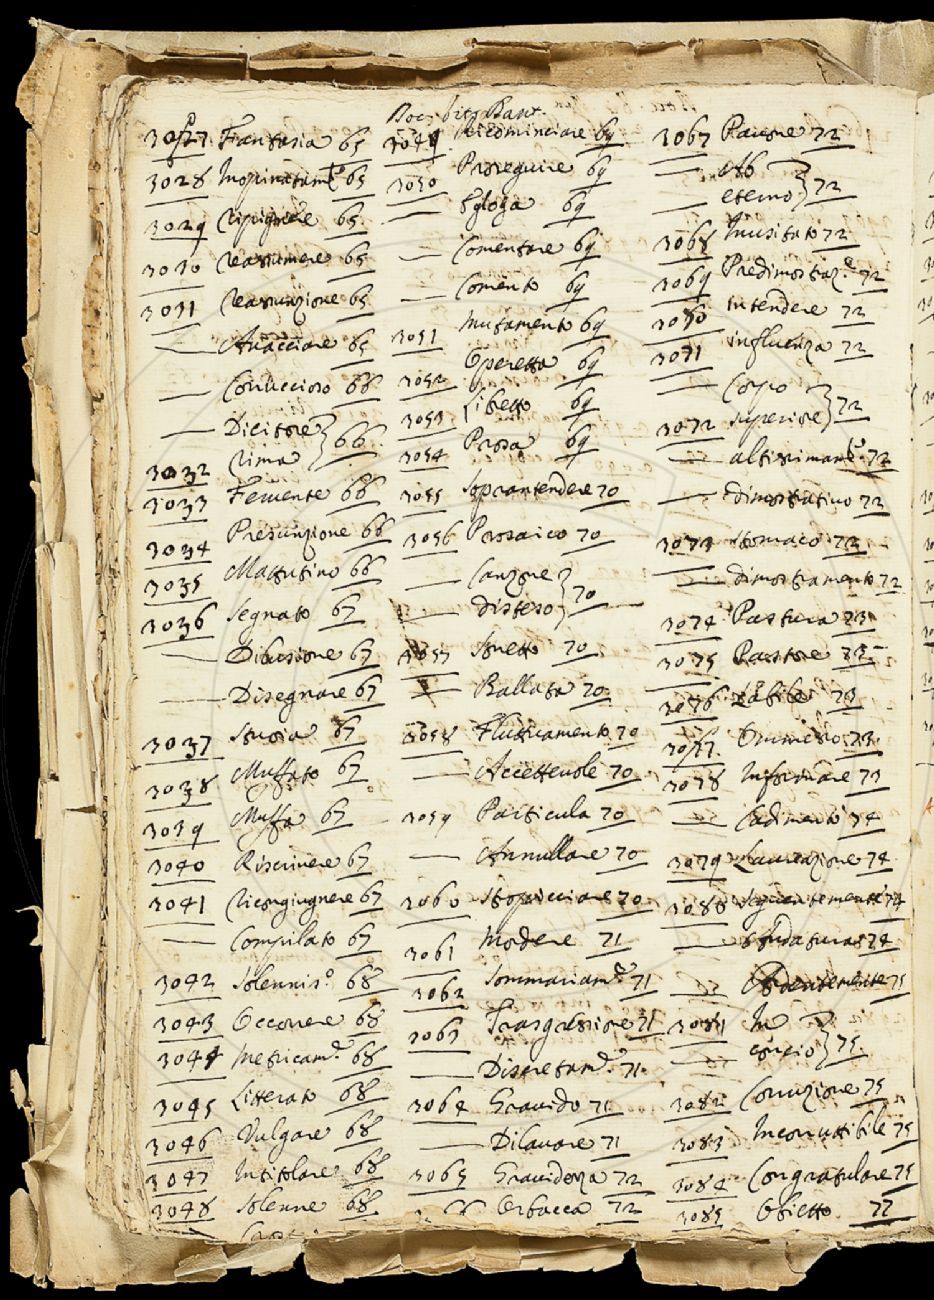 Boc. vit. Dant.
3027 Fantasia 65
3028 Inopinatam.te 65
3029 Ripignere 65
3030 Reassumere 65
3031 Reassunzione 65
— Avacciare 65
— Coruccioso 66
— Dicitore
3032 Rima } 66
3033 Fervente 66
3034 Presunzione 66
3035 Mattutino 66
3036 Segnato 67
— Dibusione 67
— Disegnare 67
3037 Stusia 67
3038 Muffato 67
3039 Muffa 67
3040 Riscrivere 67
3041 Ricongiugnere 67
— Compilato 67
3042 Solennis.o 68
3043 Occorrere 68
3044 Metricam.te 68
3045 Litterato 68
3046 Vulgare 68
3047 Intitolare 68
3048 Solenne 68
3049 Ricominciare 69
3050 Proseguire 69
— Egloga 69
— Comentare 69
— Comento 69
3051 Mutamento 69
3052 Operetta 69
3053 Libretto 69
3054 Prosa 69
3055 Soprantendere 70
3056 Prosaico 70
— Canzone
— Disteso } 70
3057 Sonetto 70
— Ballata 70
3058 Flussicamento 70
— Accettevole 70
3059 Particula 70
— Annullare 70
3060 Stopicciare 70
3061 Mordere 71
3062 Sommariam.te 71
3063 Trasgressione 71
— Discretam.te 71
3064 Gravido 71
— Dilavare 71
3065 Gravidezza 72
Orbacca 72
3067 Pavone 72
— Ab
— eterno } 72
3068 Inusitato 72
3069 Predimostraz.e 72
3070 Intendere 72
3071 Influenza 72
— Corpo
3072 Superiore } 72
— Altissimam.te 72
— Dimostrativo 72
3073 Stomaco 72
— Dimostramento 72
3074 Pastura 73
3075 Pastore 73
3076 73
3077 73
3078 Informare 73
— Cadimento 74
3079 Laureazione 74
3080 Seguentemente 74
— 74
— 75
3081 In
— } 75
3082 Corruzione 75
3083 Incorruttibile 75
3084 Congratulare 75
3085 Obietto 77